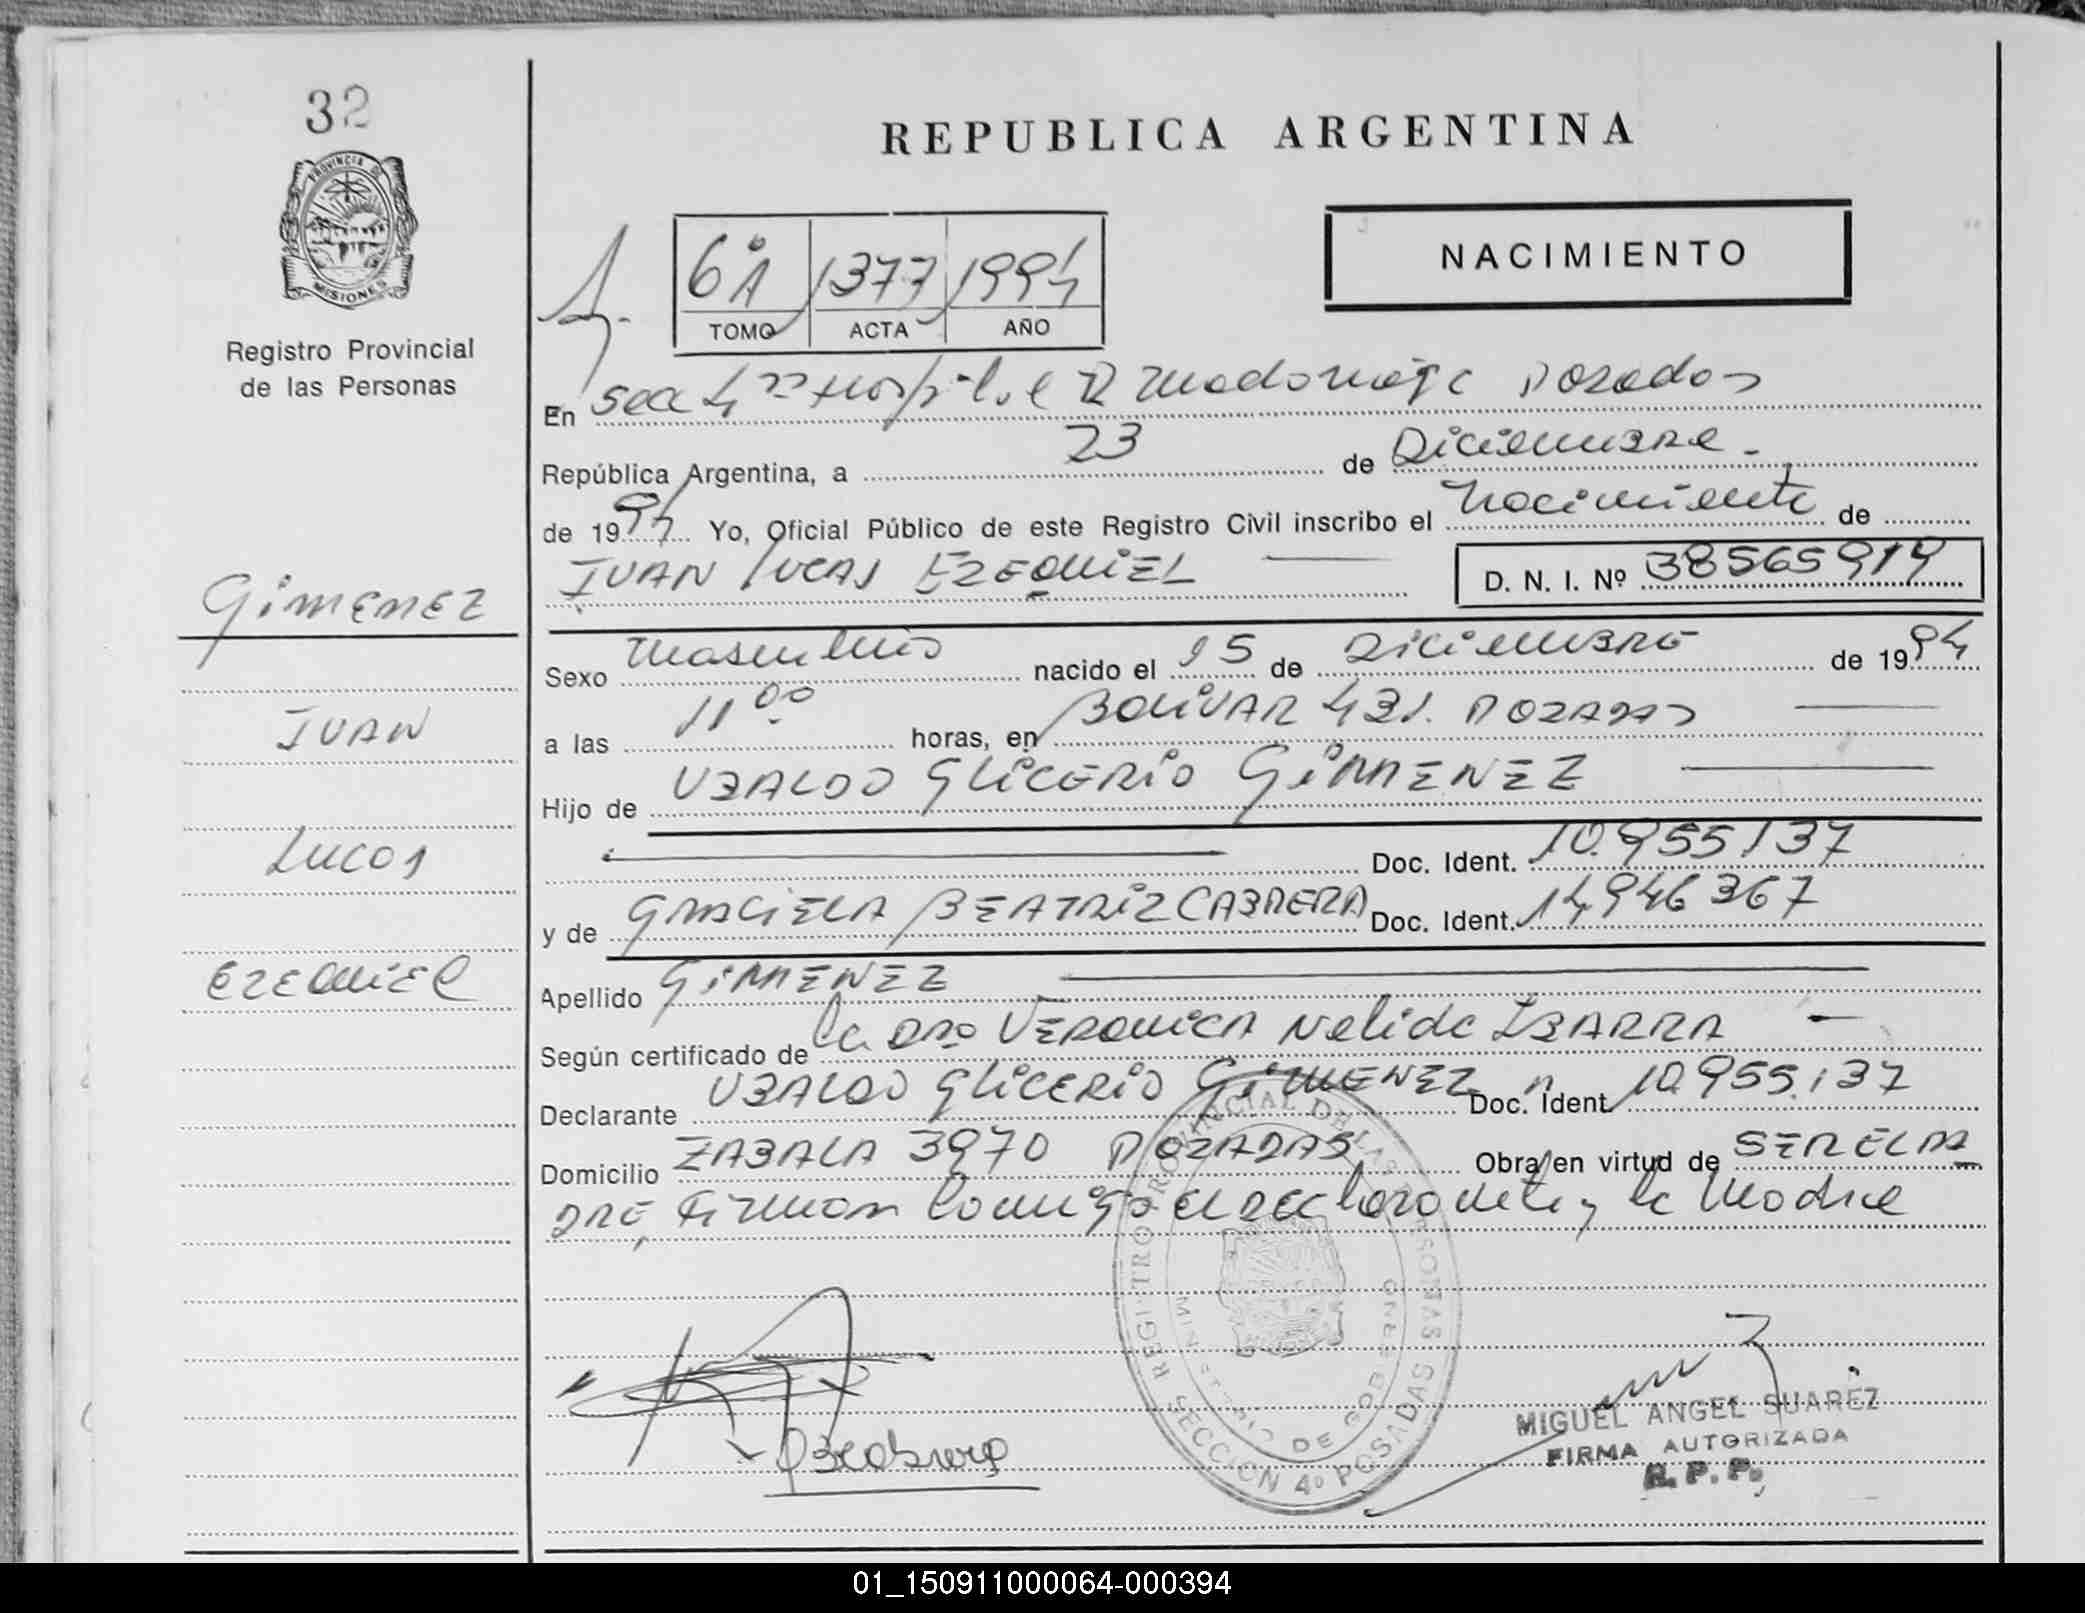 32
PROVINCIA DE
MISIONES
Registro Provincial
de las Personas
REPUBLICA ARGENTINA
NACIMIENTO
6°A 1377 1994
TOMO ACTA AÑO
En Secc 4ta Hospital R Madariaga Posadas
República Argentina, a 23 de Diciembre.
de 1994 Yo, Oficial Público de este Registro Civil inscribo el Nacimiento de
JUAN LUCAS EZEQUIEL
D. N. I. Nº 38565919
GimENEZ
JUAN
Lucas
EZEQUIEL
Sexo Masculino nacido el 15 de Diciembre de 1994
a las 11 00 horas, en BOLIVAR 431. POSADAS
Hijo de UBALDO GLICERIO GIMENEZ
Doc. Ident. 10.955137
y de GRACIELA BEATRIZ CABRERA Doc. Ident. 14946367
Apellido GIMENEZ
Según certificado de la DRA VERONICA Nelida IBARRA
Declarante UBALDO GLICERIO GIMENEZ Doc. Ident. 10.955.137
Domicilio ZABALA 3970 POSADAS Obra en virtud de SER EL PA
DRE, Firman conmigo el declarante y la Madre
REGISTRO PROVINCIAL DE LAS PERSONAS
MINISTERIO DE GOBIERNO
SECCION 4º POSADAS
MIGUEL ANGEL SUAREZ
FIRMA AUTORIZADA
R. P. P.
01_150911000064-000394